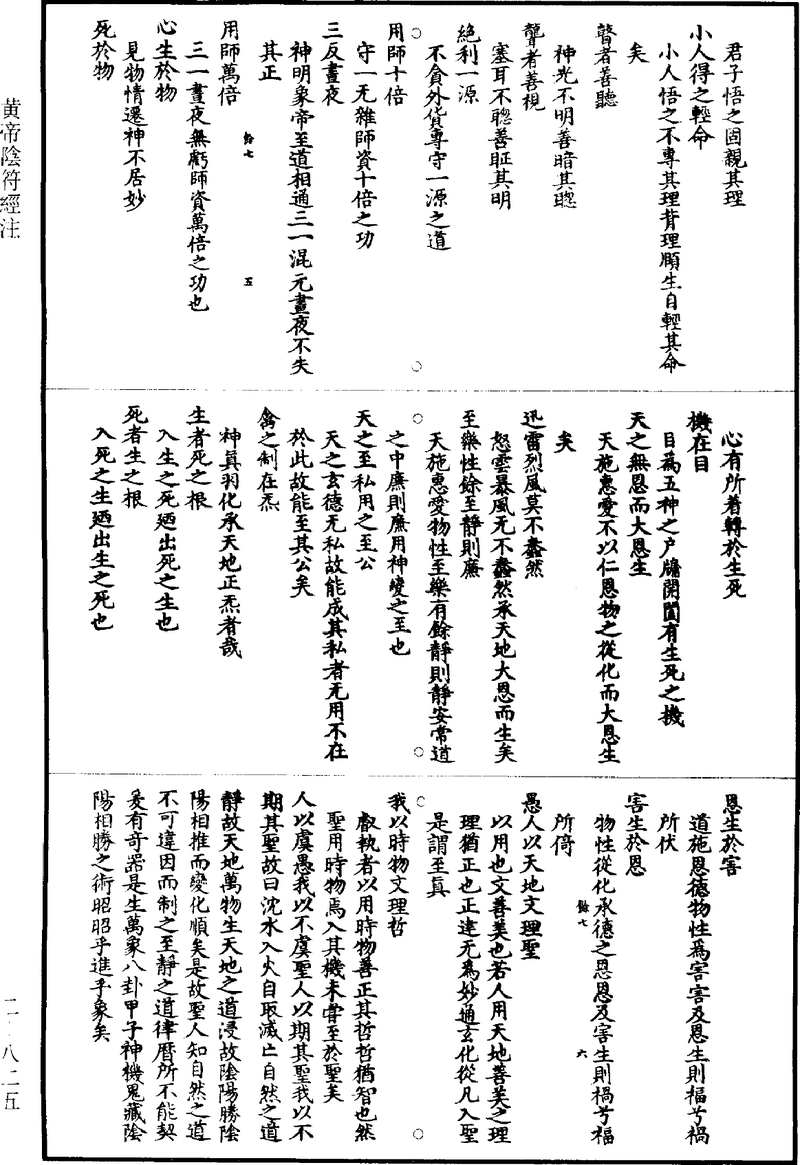 黄帝陰符經注
君子悟之固親其理
小人得之輕命
小人悟之不專其理背理願生自輕其命
矣
瞽者善聽
神光不明善暗其聰
聾者善視
塞耳不聰善眐其明
絶利一源
不貪外貨專守一源之道
用師十倍
守一无雜師資十倍之功
三反晝夜
神明象帝至道相通三一混元晝夜不失
其正
用師萬倍
餘七
五
三一晝夜無虧師資萬倍之功也
心生於物
見物情遷神不居妙
死於物
心有所著轉於生死
機在目
目為五神之户牖開闔有生死之機
天之無恩而大恩生
天施惠愛不以仁恩物之從化而大恩生
矣
迅雷烈風莫不蠢然
怒雲暴風无不蠢然承天地大恩而生矣
至樂性餘至靜則廉
天施惠愛物性至樂有餘靜則靜安常道
之中廉則廉用神變之至也
天之至私用之至公
天之玄德无私故能成其私者无用不在
於此故能至其公矣
禽之制在炁
神真羽化承天地正炁者哉
生者死之根
入生之死廼出死之生也
死者生之根
入死之生廼出生之死也
恩生於害
道施恩德物性為害害及恩生則福兮禍
所伏
害生於恩
物性從化承德之恩恩及害生則禍兮福
所倚
餘七
六
愚人以天地文理聖
以用也文善美也若人用天地善美之理
理猶正也正達无為妙通玄化從凡入聖
是謂至真
我以時物文理哲
叡執者以用時物善正其哲哲猶智也然
聖用時物焉入其機未甞至於聖矣
人以虞愚我以不虞聖人以期其聖我以不
期其聖故曰沈水入火自取滅亡自然之道
靜故天地萬物生天地之道浸故陰陽勝陰
陽相推而變化順矣是故聖人知自然之道
不可違因而制之至靜之道律曆所不能契
爰有奇器是生萬象八卦甲子神機鬼藏陰
陽相勝之術昭昭乎進乎象矣
二-八二五